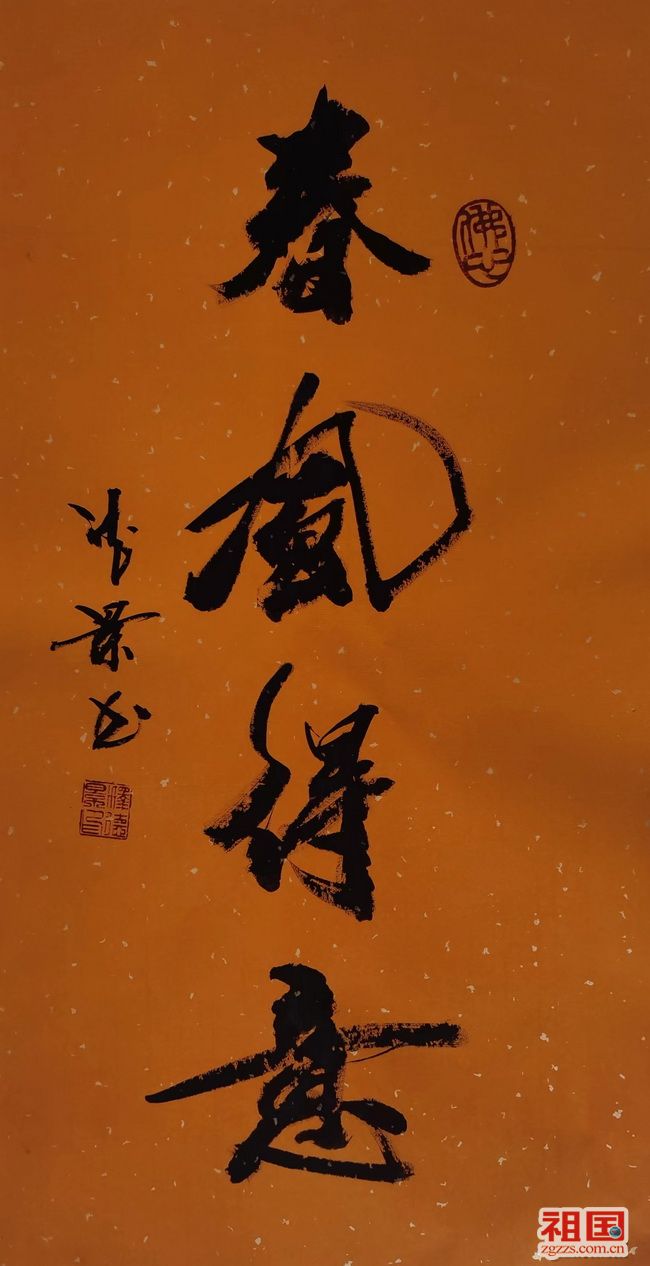 春風得意
佛心
景书
祖国
zgzzs.com.cn